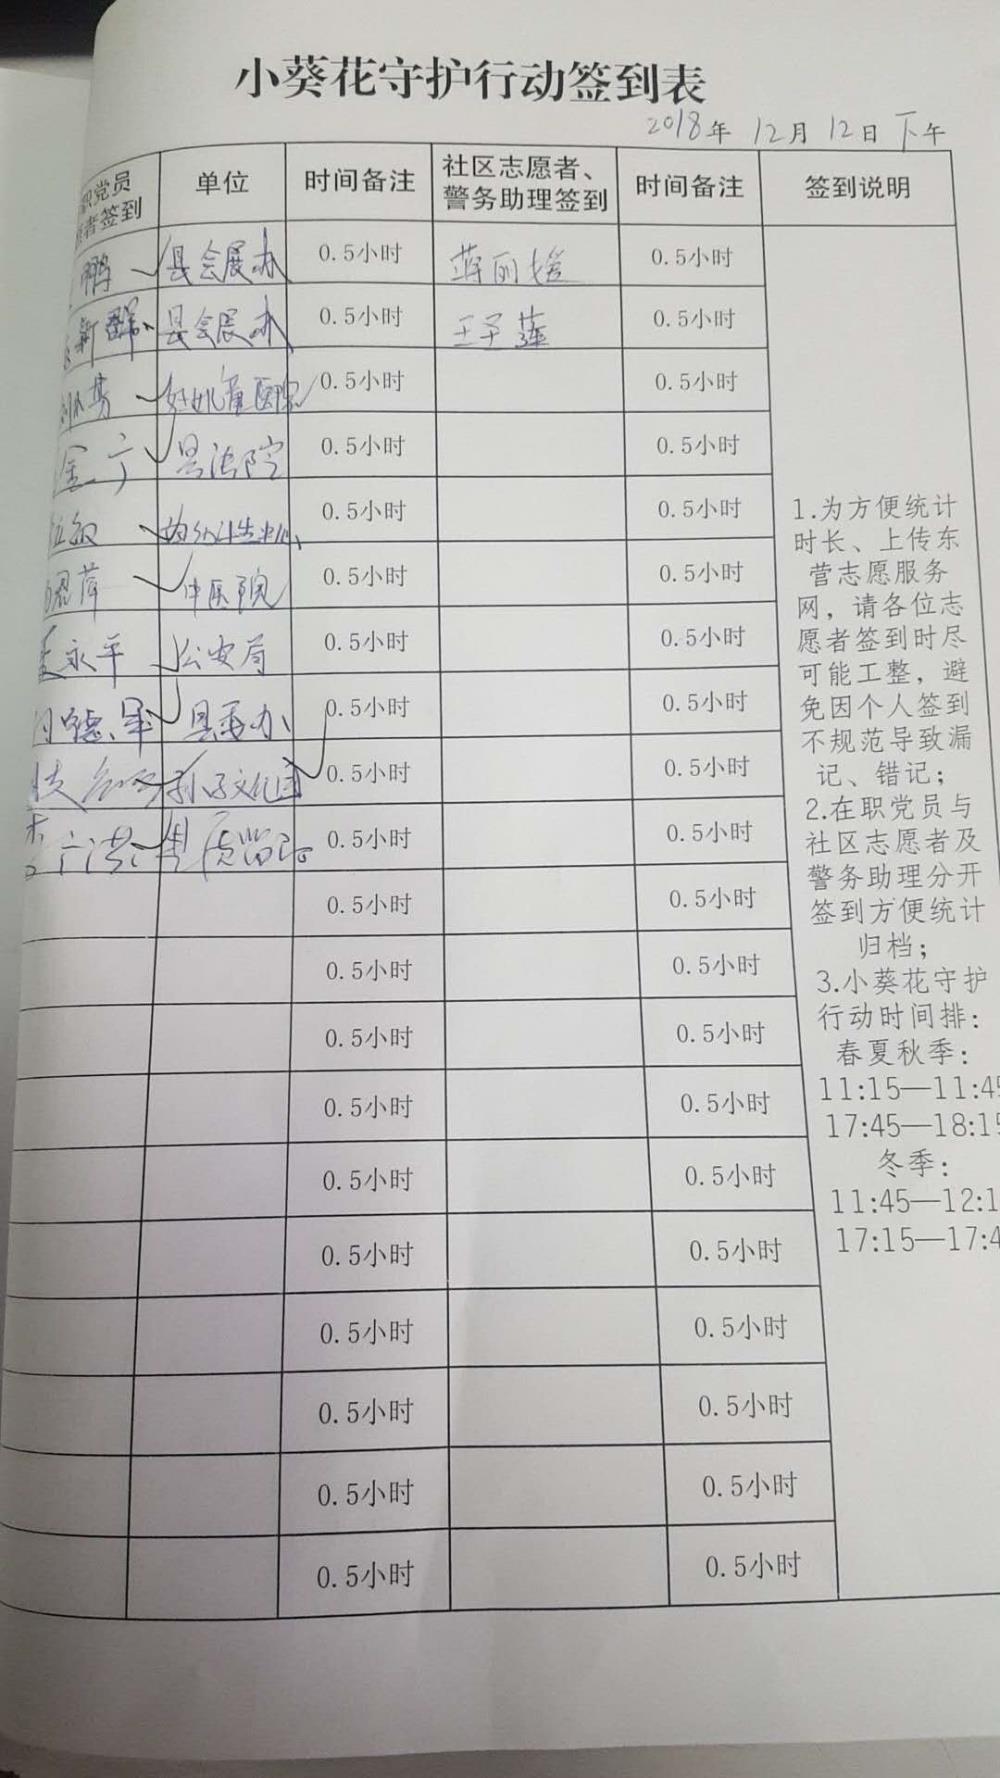 小葵花守护行动签到表
2018年 12月 12日 下午
职党员
愿者签到
单位
时间备注
社区志愿者、
警务助理签到
时间备注
签到说明
鹏 县会展办 0.5小时 蒋丽媛 0.5小时
新群 县会展办 0.5小时 王子莲 0.5小时
0.5小时 0.5小时
金 县法院 0.5小时 0.5小时
0.5小时 0.5小时
萍 中医院 0.5小时 0.5小时
永平 公安局 0.5小时 0.5小时
德军 县委办 0.5小时 0.5小时
孙子文化园 0.5小时 0.5小时
0.5小时 0.5小时
0.5小时 0.5小时
0.5小时 0.5小时
0.5小时 0.5小时
0.5小时 0.5小时
0.5小时 0.5小时
0.5小时 0.5小时
0.5小时 0.5小时
0.5小时 0.5小时
0.5小时 0.5小时
0.5小时 0.5小时
1.为方便统计
时长、上传东
营志愿服务
网，请各位志
愿者签到时尽
可能工整，避
免因个人签到
不规范导致漏
记、错记；
2.在职党员与
社区志愿者及
警务助理分开
签到方便统计
归档；
3.小葵花守护
行动时间排：
春夏秋季：
11:15—11:45
17:45—18:15
冬季：
11:45—12:1
17:15—17:4